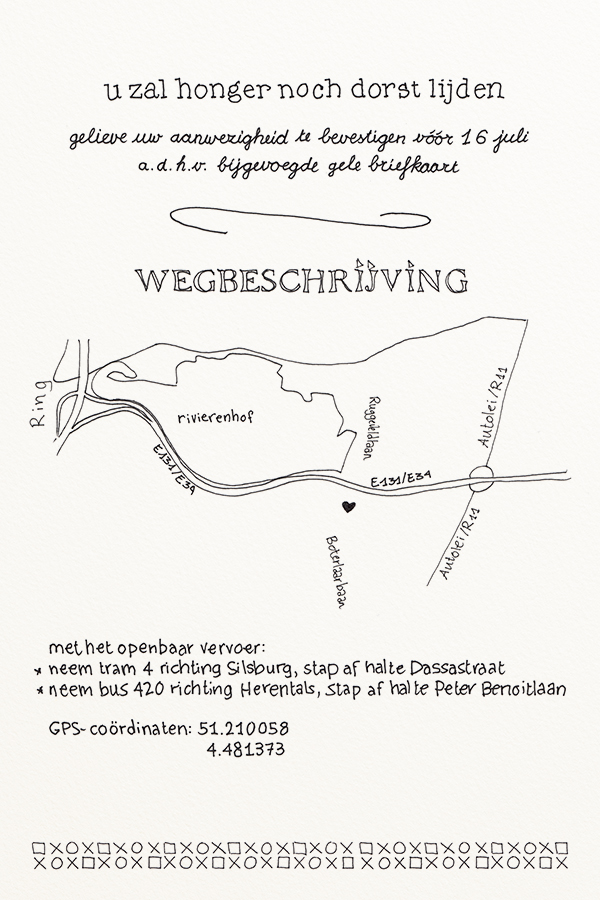 u zal honger noch dorst lijden
gelieve uw aanwezigheid te bevestigen vóór 16 juli
a.d.h.v. bijgevoegde gele briefkaart
WEGBESCHRIJVING
Ring
rivierenhof
Ruggeveldlaan
Autolei/R11
E131/E39
E131/E34
Boterlaarbaan
Autolei/R11
met het openbaar vervoer:
* neem tram 4 richting Silsburg, stap af halte Dassastraat
* neem bus 420 richting Herentals, stap af halte Peter Benoitlaan
GPS-coördinaten: 51.210058
4.481373